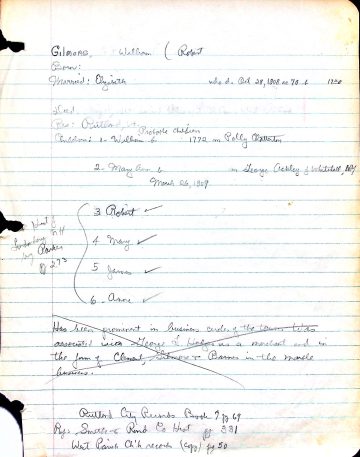 Gilmore, William ( Robert
Born:
Married: Elizabeth who d. Oct 28, 1808 ae 70
Died.
Res: Rutland, Vt
Probable children
Children: 1- William b. 1772 m Polly
2. Mary Ann b m George Oakley of Whitehall, NY
March 26, 1809
3 Robert ✓
4 Mary ✓
5 James ✓
6. Anne ✓
See Hist of
Londonderry NH
by Parker
p 273
Has been prominent in business circles of the town. Was
associated with George L. as a merchant and in
the firm of Clement, Gilmore & Barnes in the marble
business.
Rutland City Records Book 7 pg 69
Ref: Smith & Rand Co Hist pg 331
West Parish Ch'h records (copy) pg 50